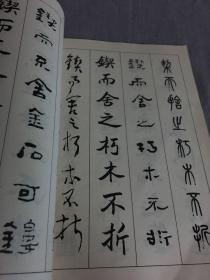 鍥而舍之朽木不折
鍥而舍之朽木不折
鍥而舍之朽木不折
鍥而舍之朽木不折
鍥而不舍金石可
鍥而